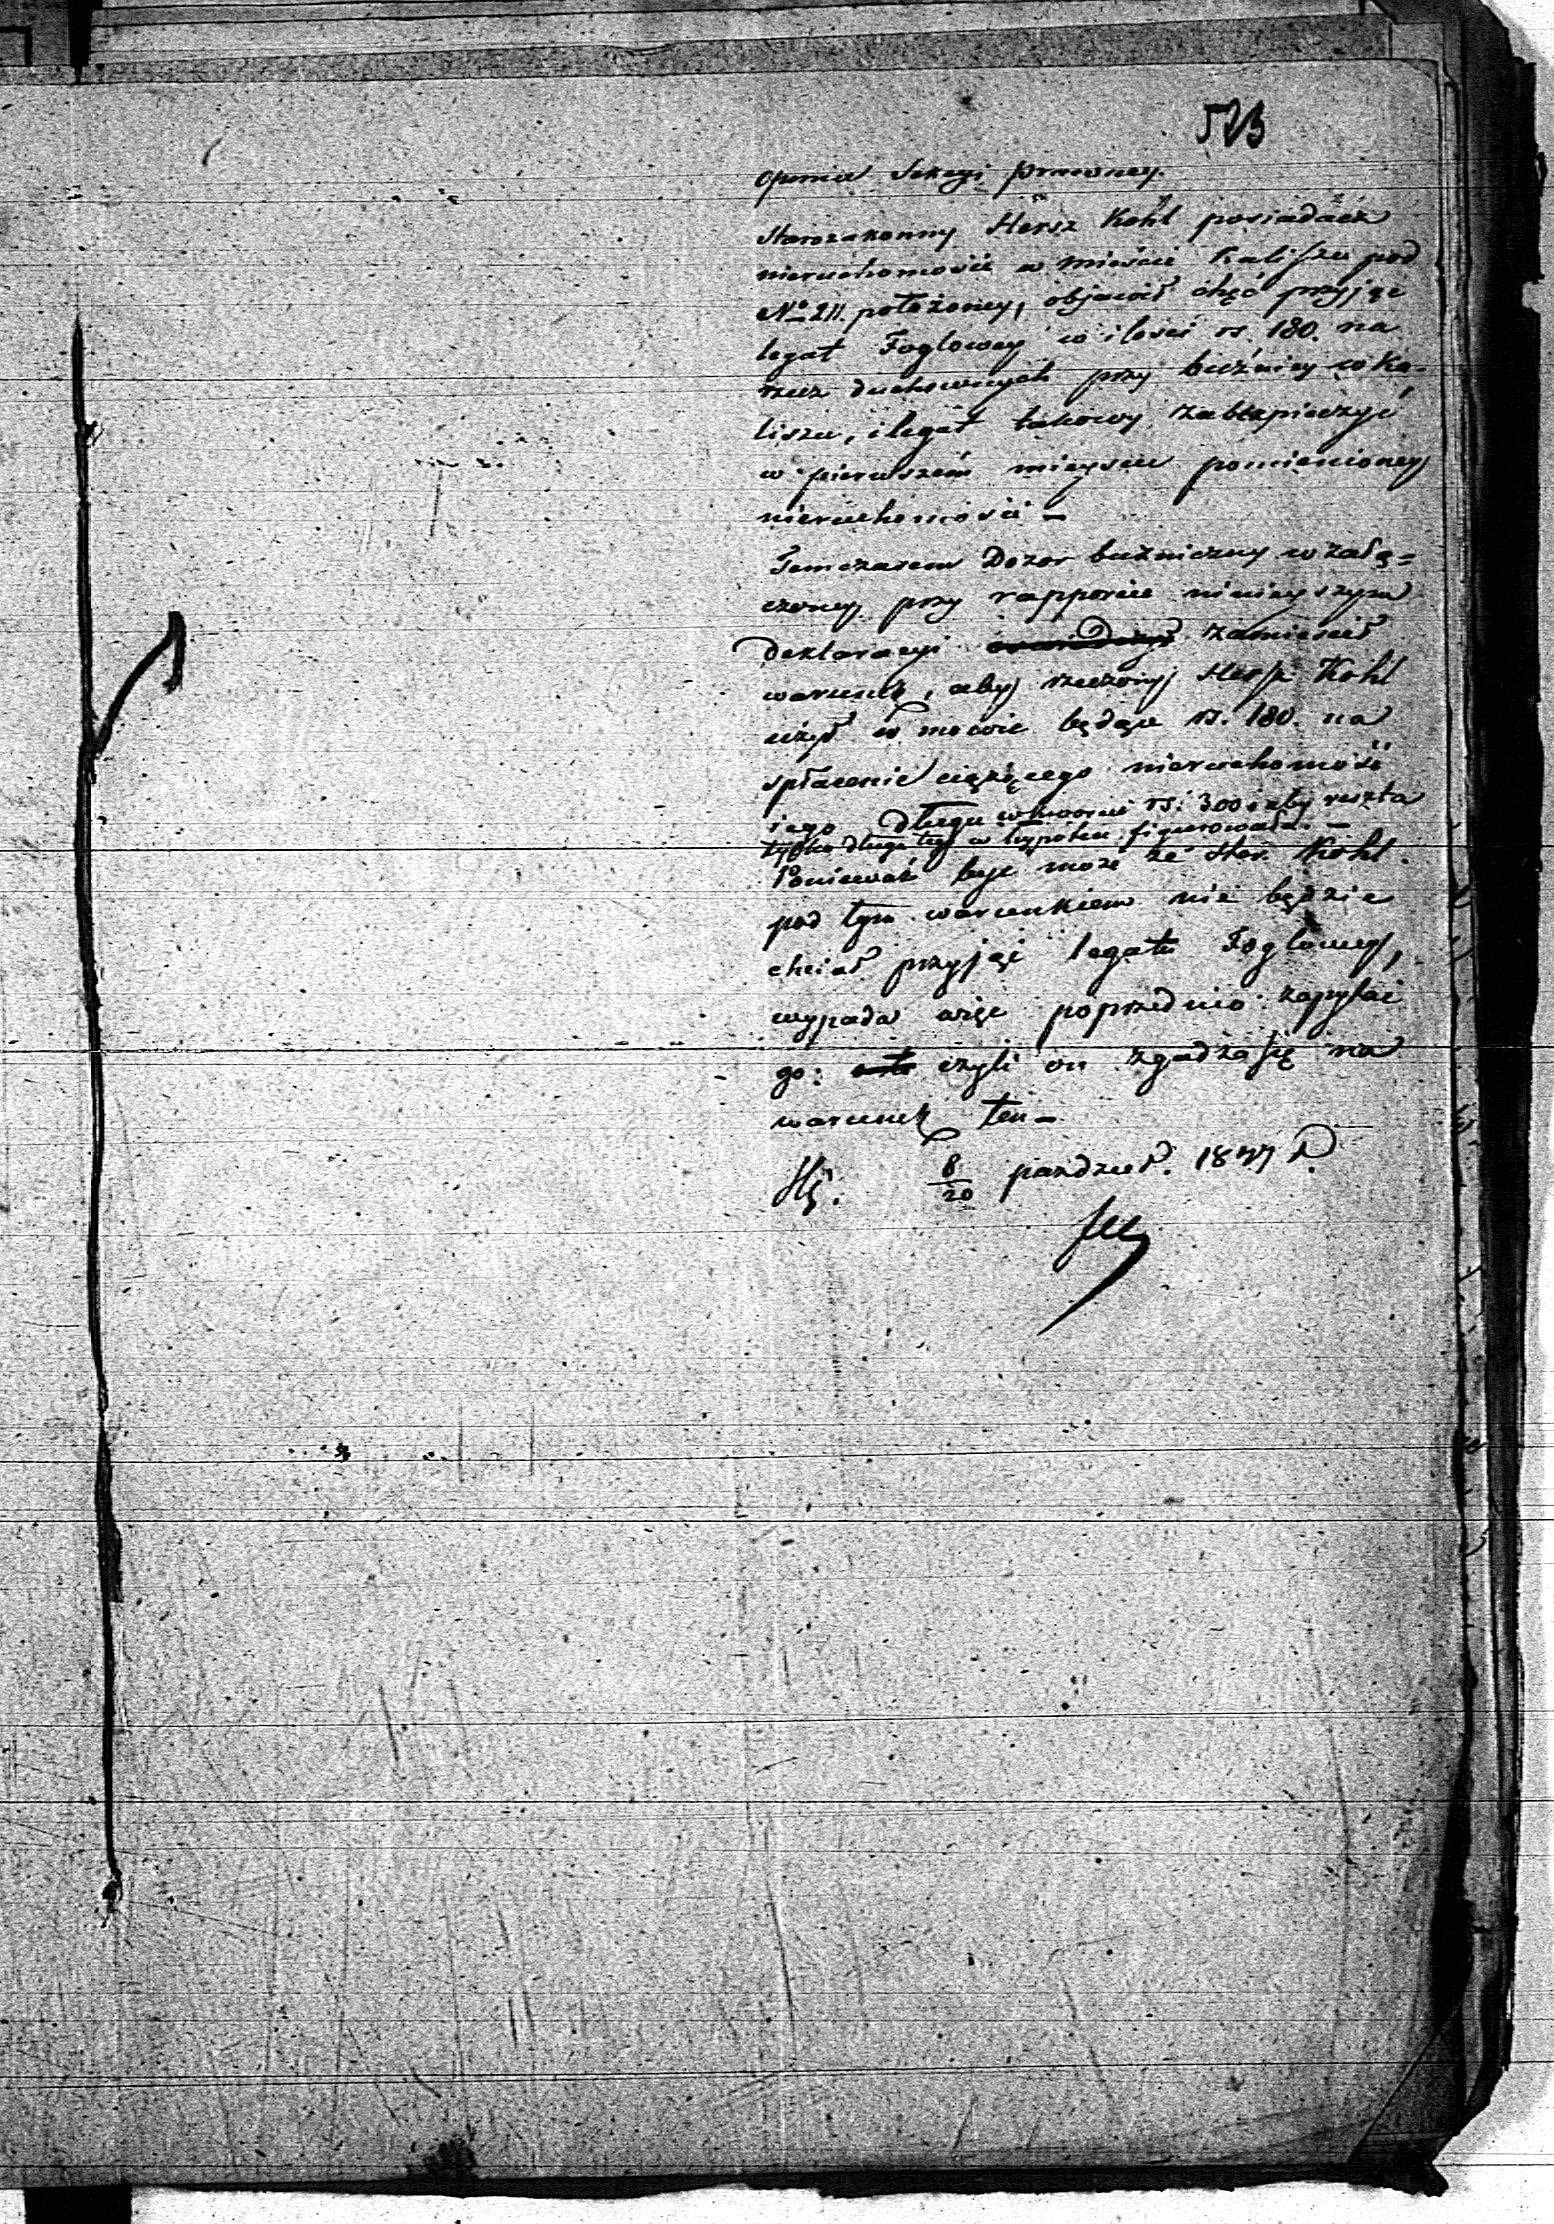 523
Opinia Sekcyi prawney.
Starozakonny Hersz Kohl posiadacz
nieruchomości w mieście Kaliszu pod
No 211. położoney, objawił chęć przyjęc
legat Foglowey w ilości rs. 180. na
rzecz duchownych przy buźnicy w Ka-
liszu, i legat takowy zabezpieczyć
w pierwszém mieyscu pomienioney
nieruchomości –
Temczasem Dozor buźniczny w załą=
czoney przy rapporcie ninieyszym
Deklaracyi zamieścił
warunek, aby rzeczony Hersz Kohl
użył w mowie będące rs. 180. na
spłacenie ciążącego nieruchomość
iego długu w kwocie rs: 300 i aby reszta
tylko długu tego w hypotece figurowała. –
Ponieważ być może że Star. Kohl
pod tym warunkiem nie będzie
chciał przyjąć legatu Foglowey,
wypada więc poprzednio zapytać
go: czyli on zgadza się na
warunek ten –
8/20 pazdzier. 1847 r.